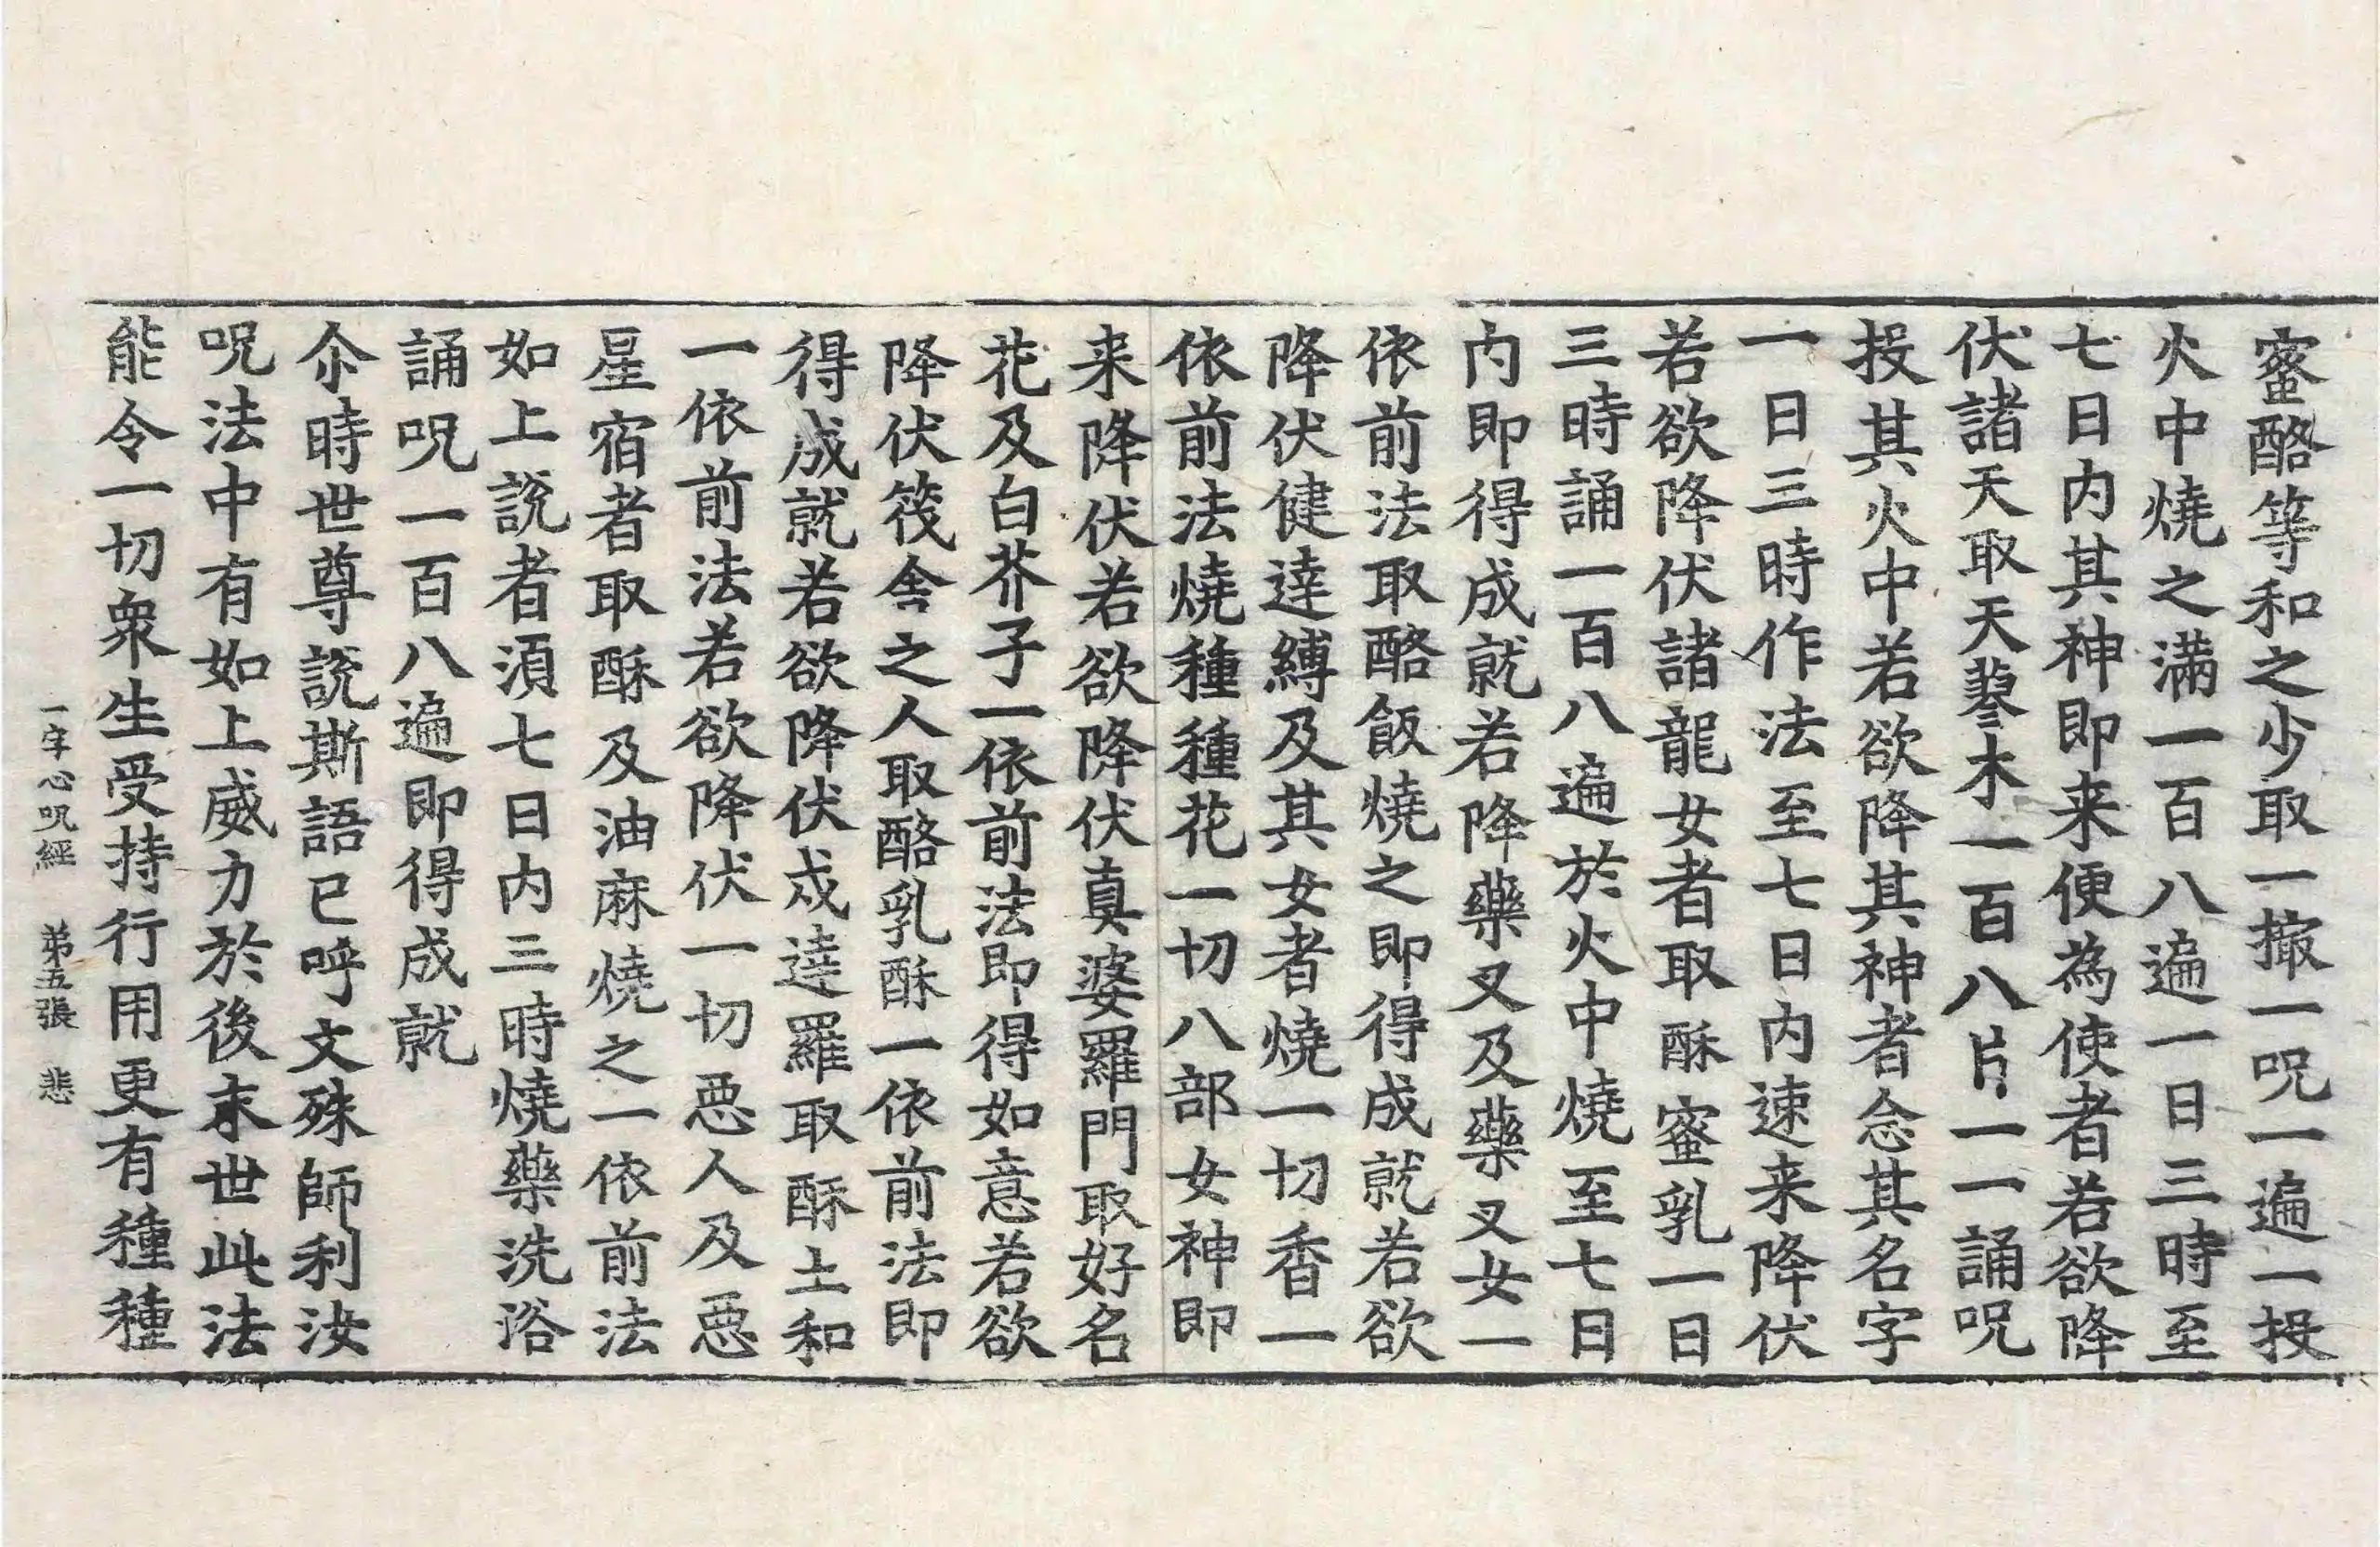 蜜酪等和之少取一撮一呪一遍一投
火中燒之滿一百八遍一日三時至
七日内其神即来便為使者若欲降
伏諸天取天蓼木一百八片一一誦呪
投其火中若欲降其神者念其名字
一日三時作法至七日内速来降伏
若欲降伏諸龍女者取酥蜜乳一日
三時誦一百八遍於火中燒至七日
内即得成就若降藥叉及藥叉女一
依前法取酪飯燒之即得成就若欲
降伏健達縛及其女者燒一切香一
依前法燒種種花一切八部女神即
来降伏若欲降伏真婆羅門取好名
花及白芥子一依前法即得如意若欲
降伏筏舍之人取酪乳酥一依前法即
得成就若欲降伏戍達羅取酥土和
一依前法若欲降伏一切惡人及惡
星宿者取酥及油麻燒之一依前法
如上說者須七日内三時燒藥洗浴
誦呪一百八遍即得成就
尒時世尊說斯語已呼文殊師利汝
呪法中有如上威力於後末世此法
能令一切衆生受持行用更有種種
一字心呪經 弟五張 悲